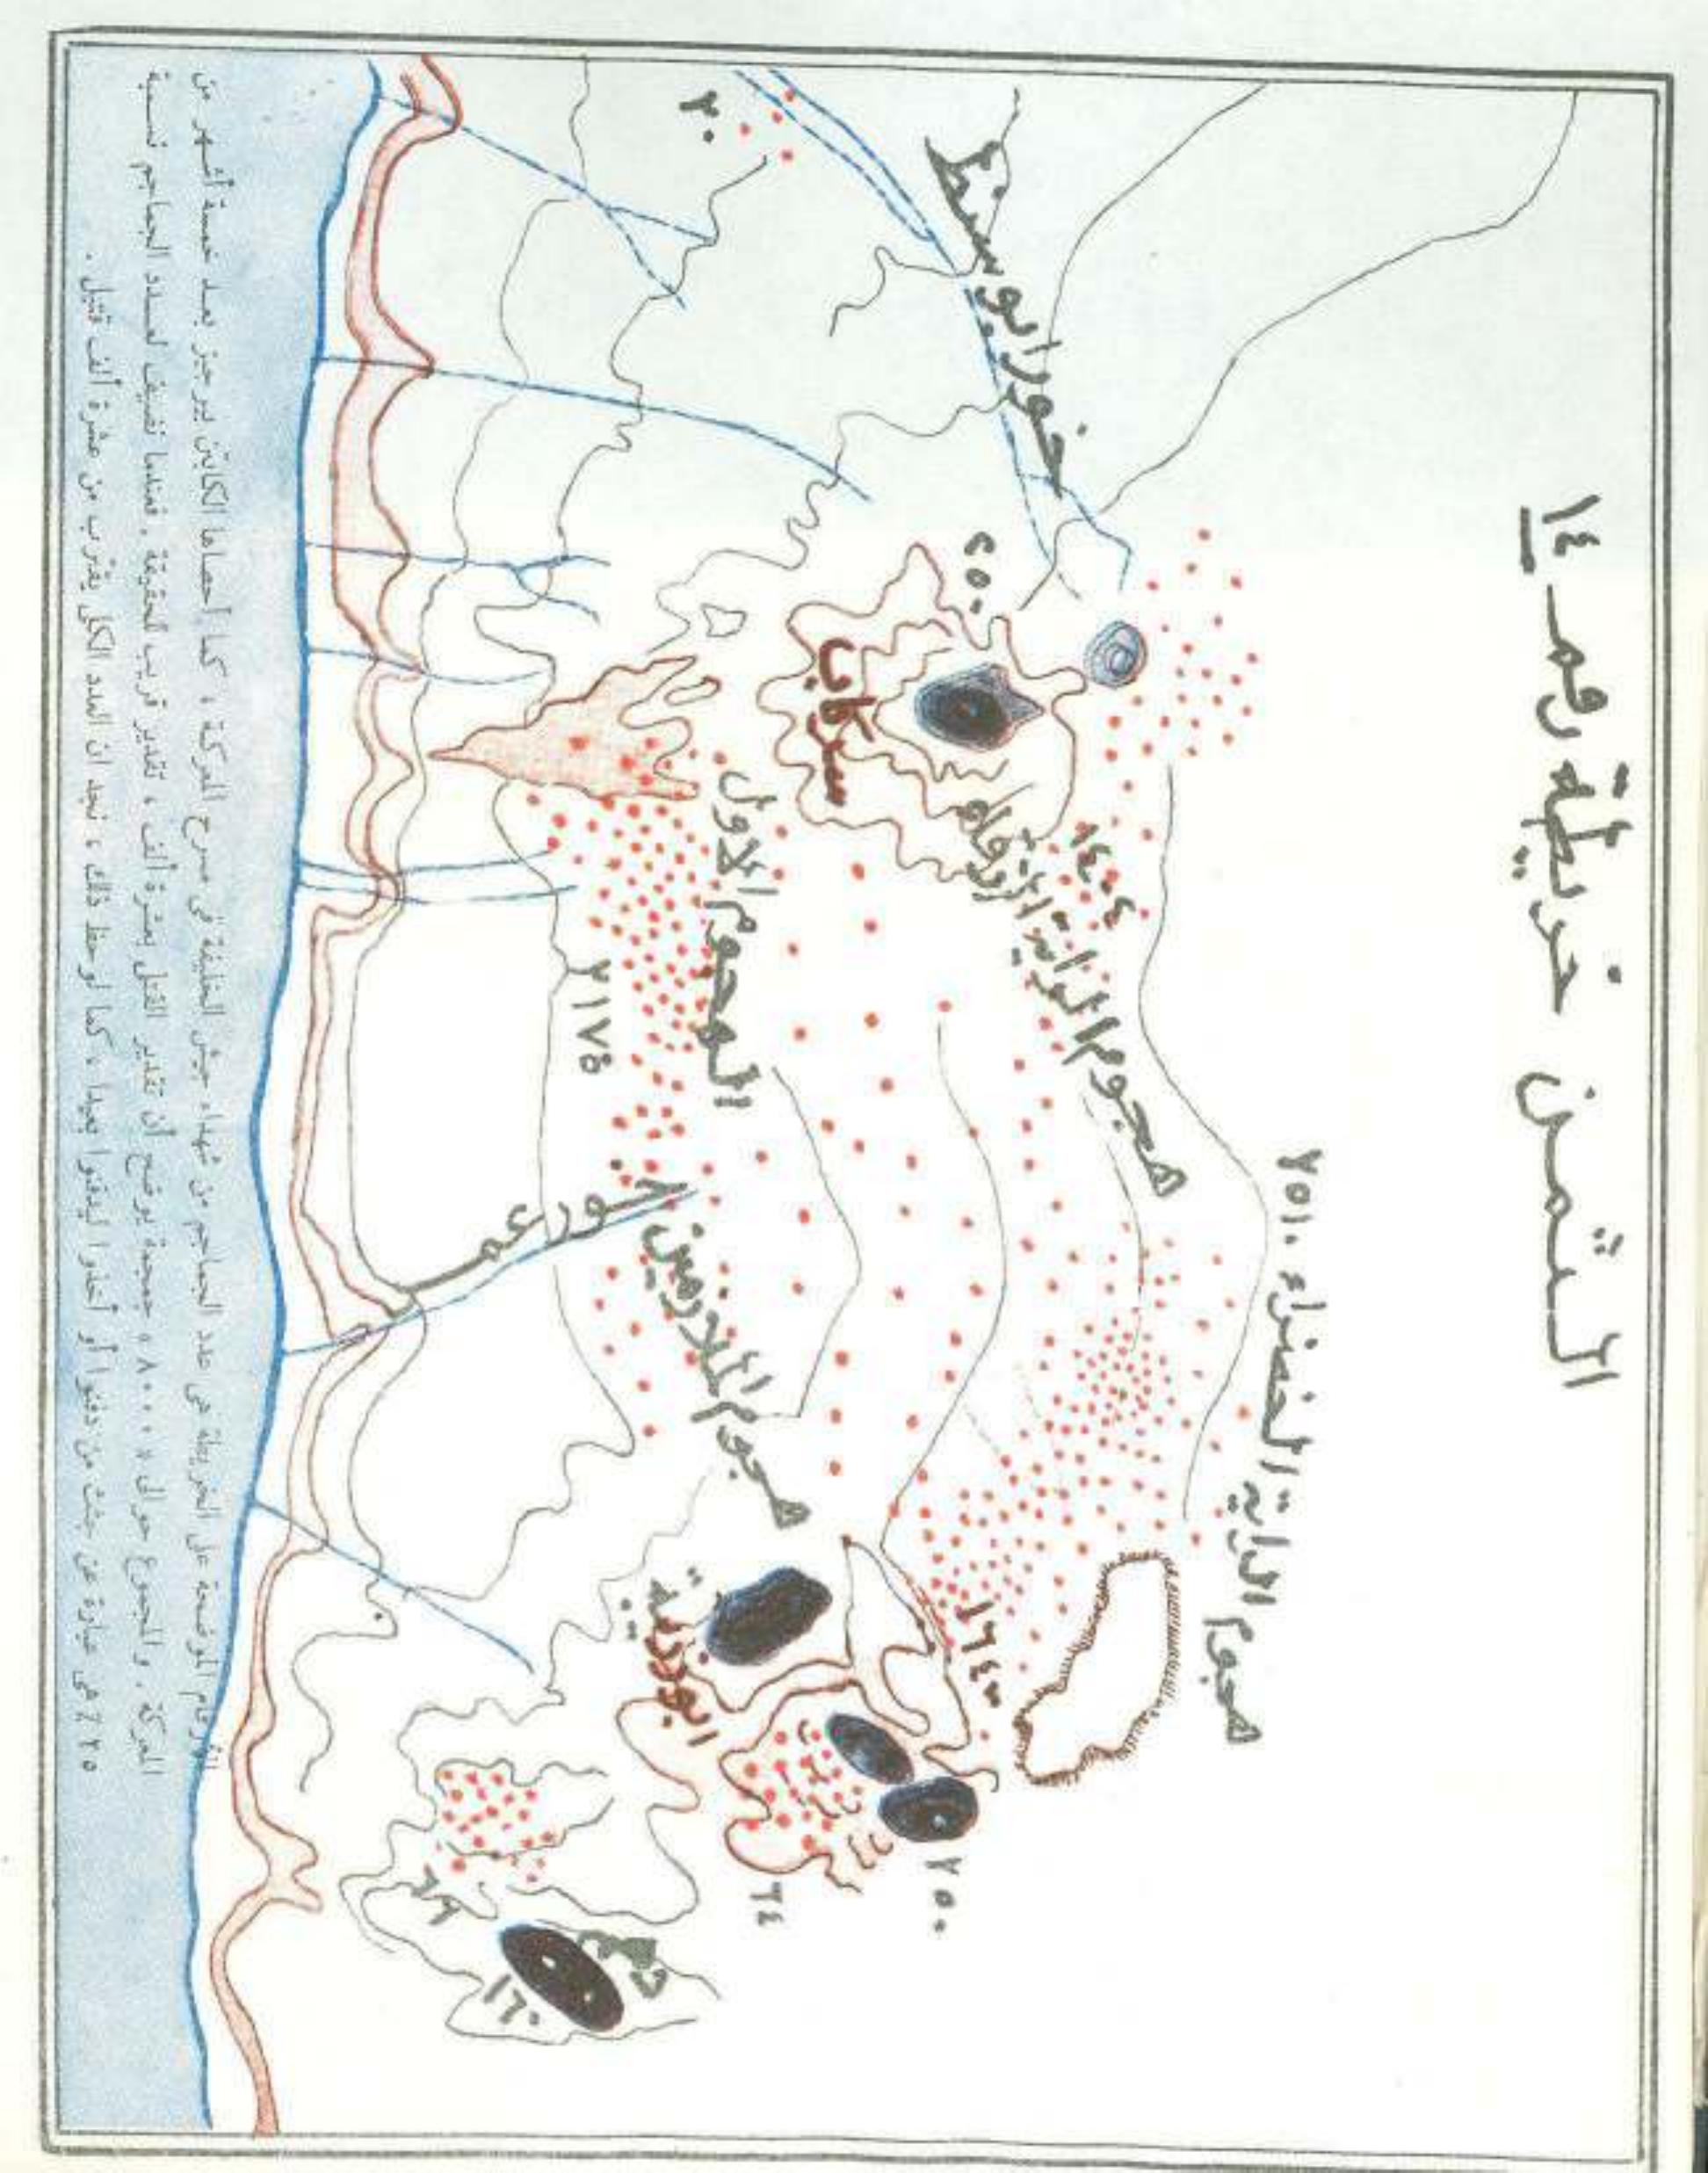 الثمن خريطة رقم ١٤
هجوم الراية الخضراء
هجوم الراية الزرقاء
١٤٠٤
خور ابو سنط
٢٠
سركاب
الهجوم الاول
٢١٧٥
هجوم الملازمين
خور عمر
٢٥٠
٦٤
٦٩
١٦٠
الأرقام الموضحة على الخريطة هى عدد الجماجم من شهداء جيش الخليفة فى مسرح المعركة ، كما أحصاها الكابتن بيرجيز بعد خمسة أشهر من
المعركة . والمجموع حوالى « ٨٠٠٠ » جمجمة يوضح أن تقدير القتلى بعشرة ألف ، تقدير قريب للحقيقة . فعندما نضيف لعدد الجماجم نسبة
٢٥٪ هى عبارة عن جثث من دفنوا أو أخذوا ليدفنوا بعيدا ، كما لوحظ ذلك ، نجد ان العدد الكلى يقترب من عشرة ألف قتيل .